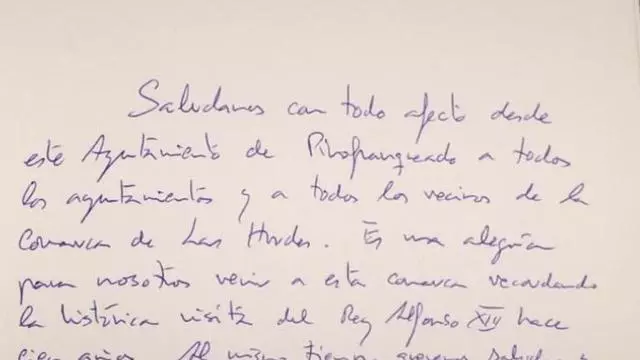 Saludamos con todo afecto desde
este Ayuntamiento de Pinofranqueado a todos
los ayuntamientos y a todos los vecinos de la
comarca de Las Hurdes. Es una alegría
para nosotros venir a esta comarca recordando
la histórica visita del Rey Alfonso XIV hace
cien años. Al mismo tiempo, queremos saludar a